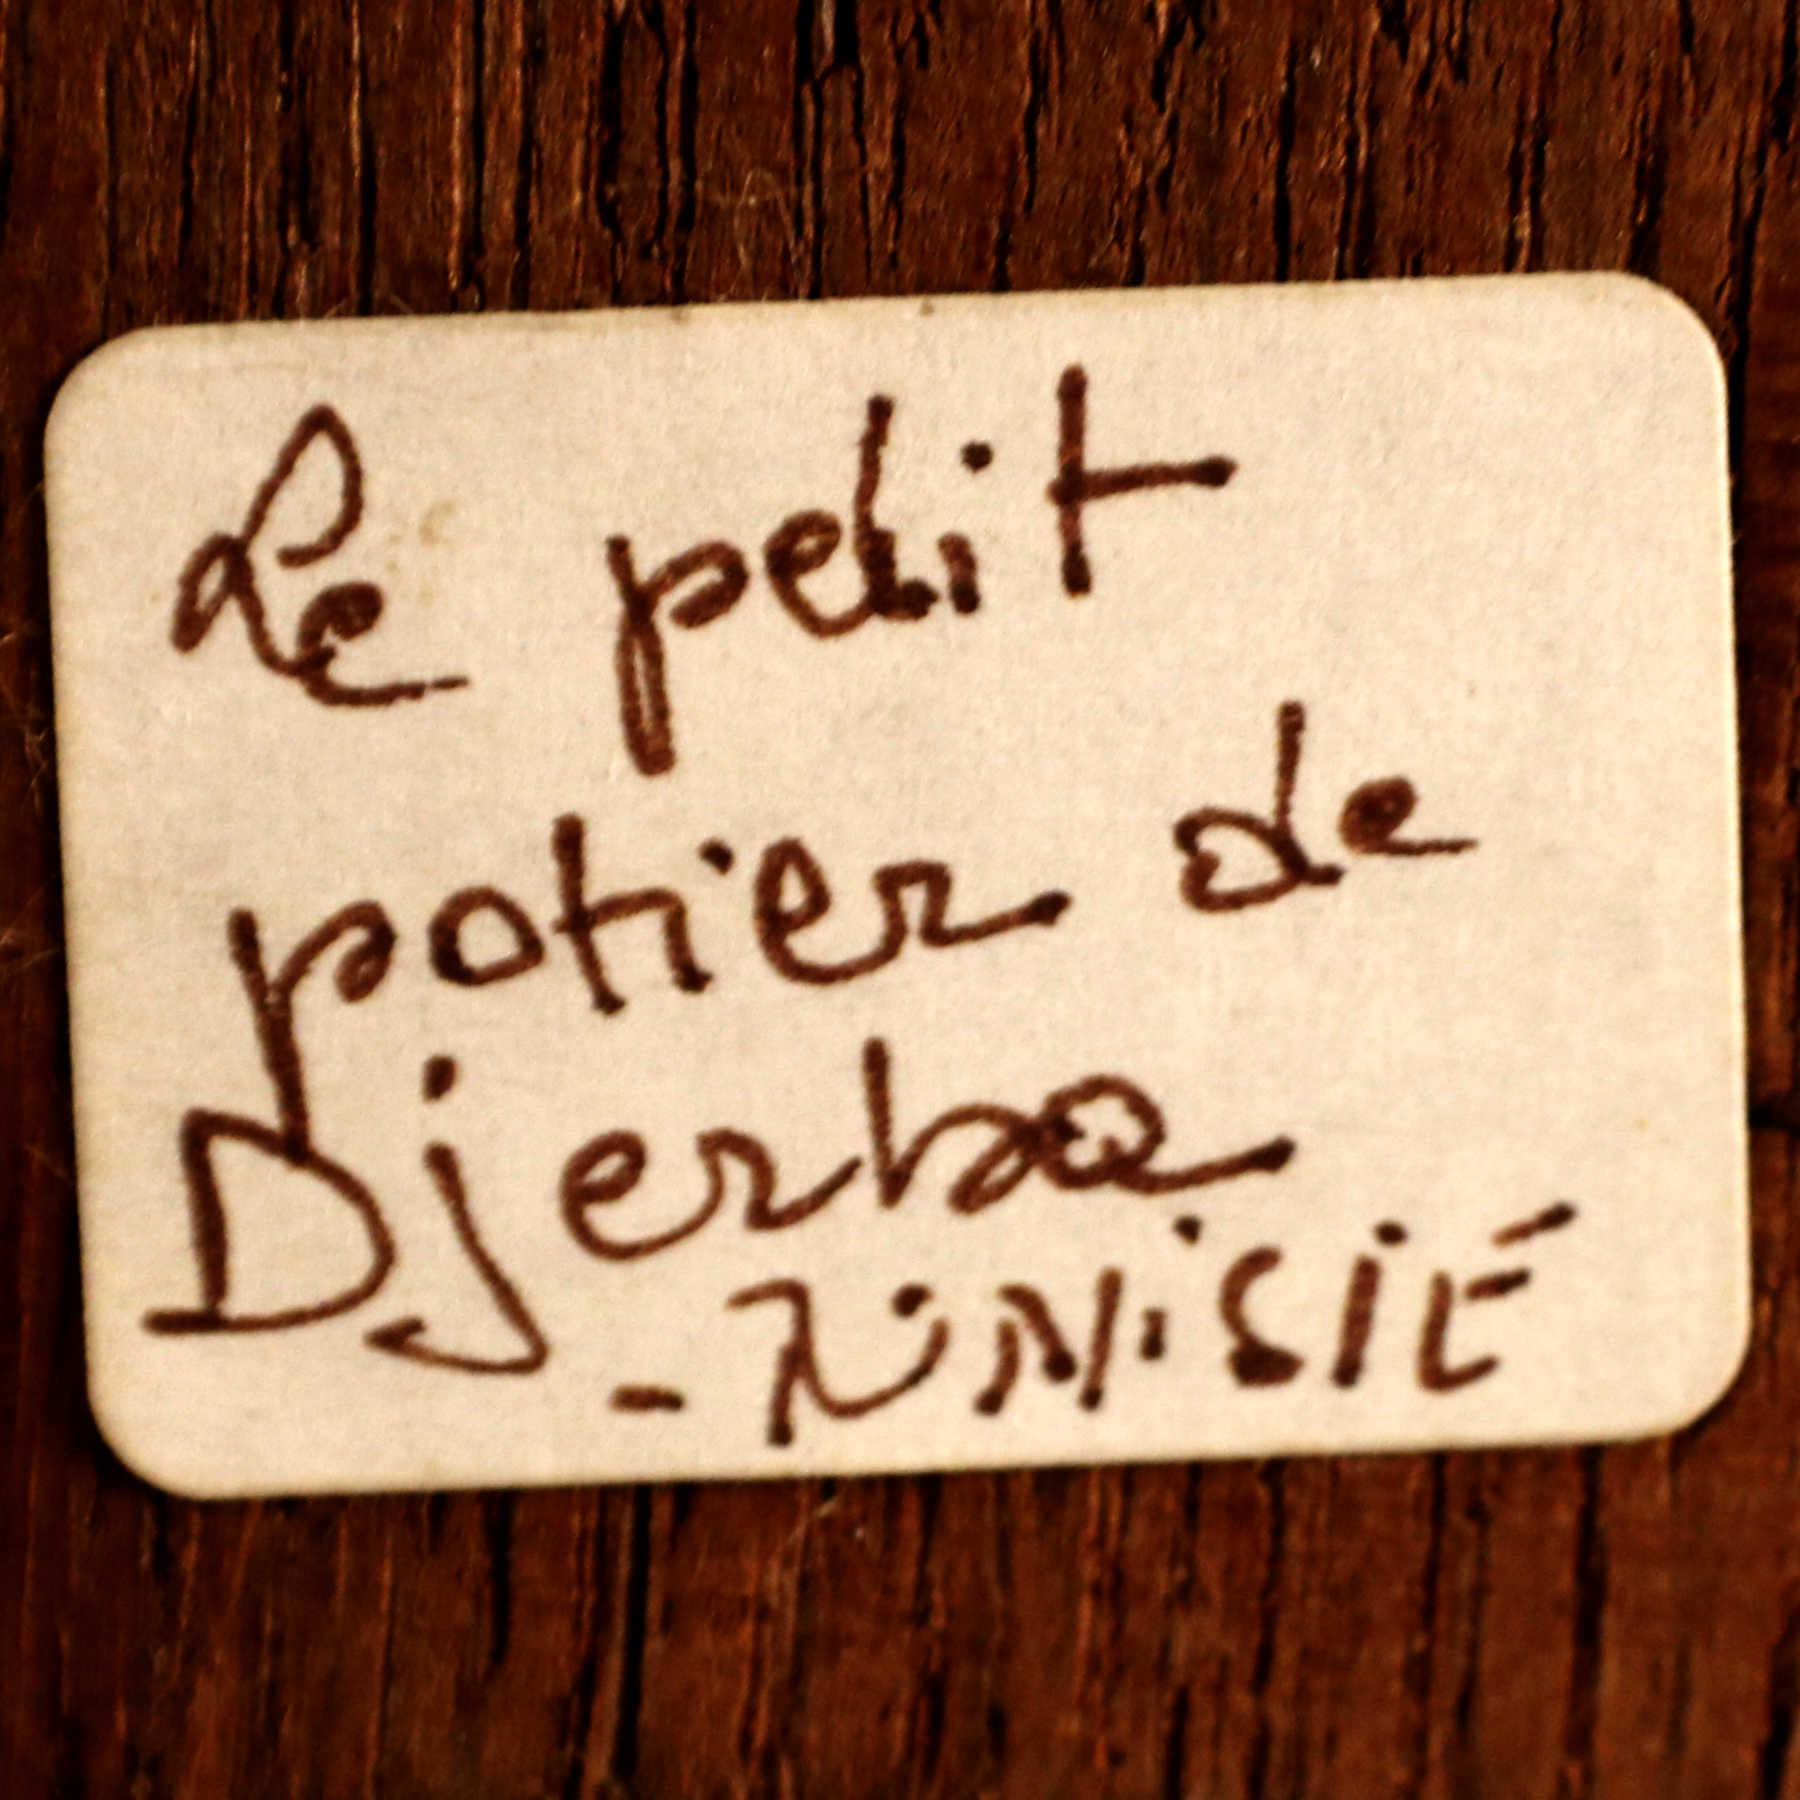 Le petit
potier de
Djerba
- TUNiSiE